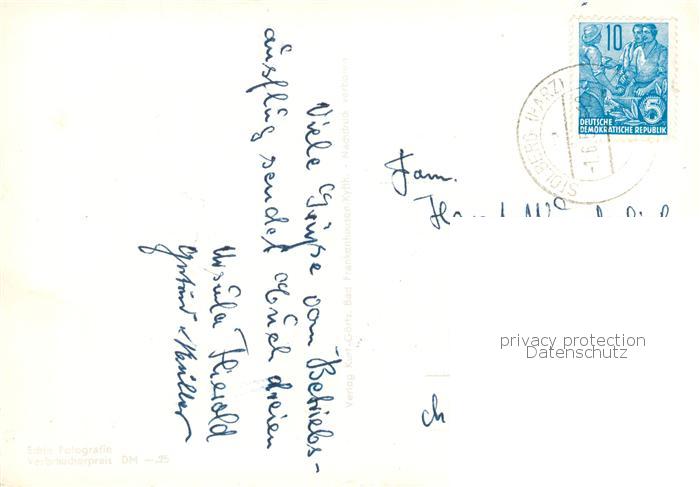 Viele Grüße vom Betriebs-
ausflug sendet Euch dreien
Ursula Hierold
Müller
Verlag Kurt Görtz, Bad Frankenhausen Kyffh. - Nachdruck verboten
Echte Fotografie
Verbraucherpreis DM -.25
10
5
DEUTSCHE
DEMOKRATISCHE REPUBLIK
STOLBERG (HARZ)
-1.6.5
Fam.
privacy protection
Datenschutz
ch